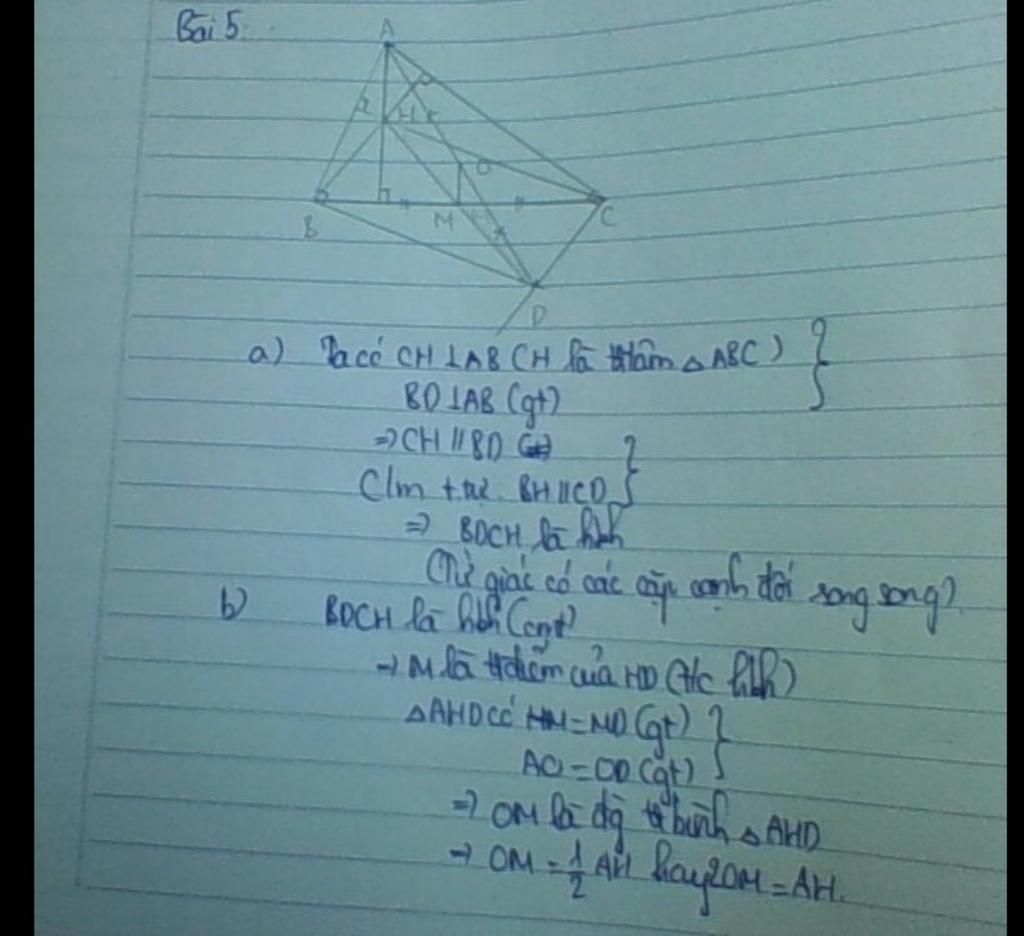 Bài 5:
A
H
O
B
M
C
D
a) Ta có CH⊥AB (H là ttâm △ABC) }
BD⊥AB (gt)
⇒ CH // BD
Clm t.tự BH // CD }
⇒ BDCH là hbh
(Tứ giác có các cặp cạnh đối song song)
b) BDCH là hbh (cmt)
→ M là tđiểm của HD (t/c hbh)
△AHD có HM = MD (gt) }
AO = OD (gt)
⇒ OM là đg tbình △AHD
→ OM = 1/2 AH hay 2OM = AH.